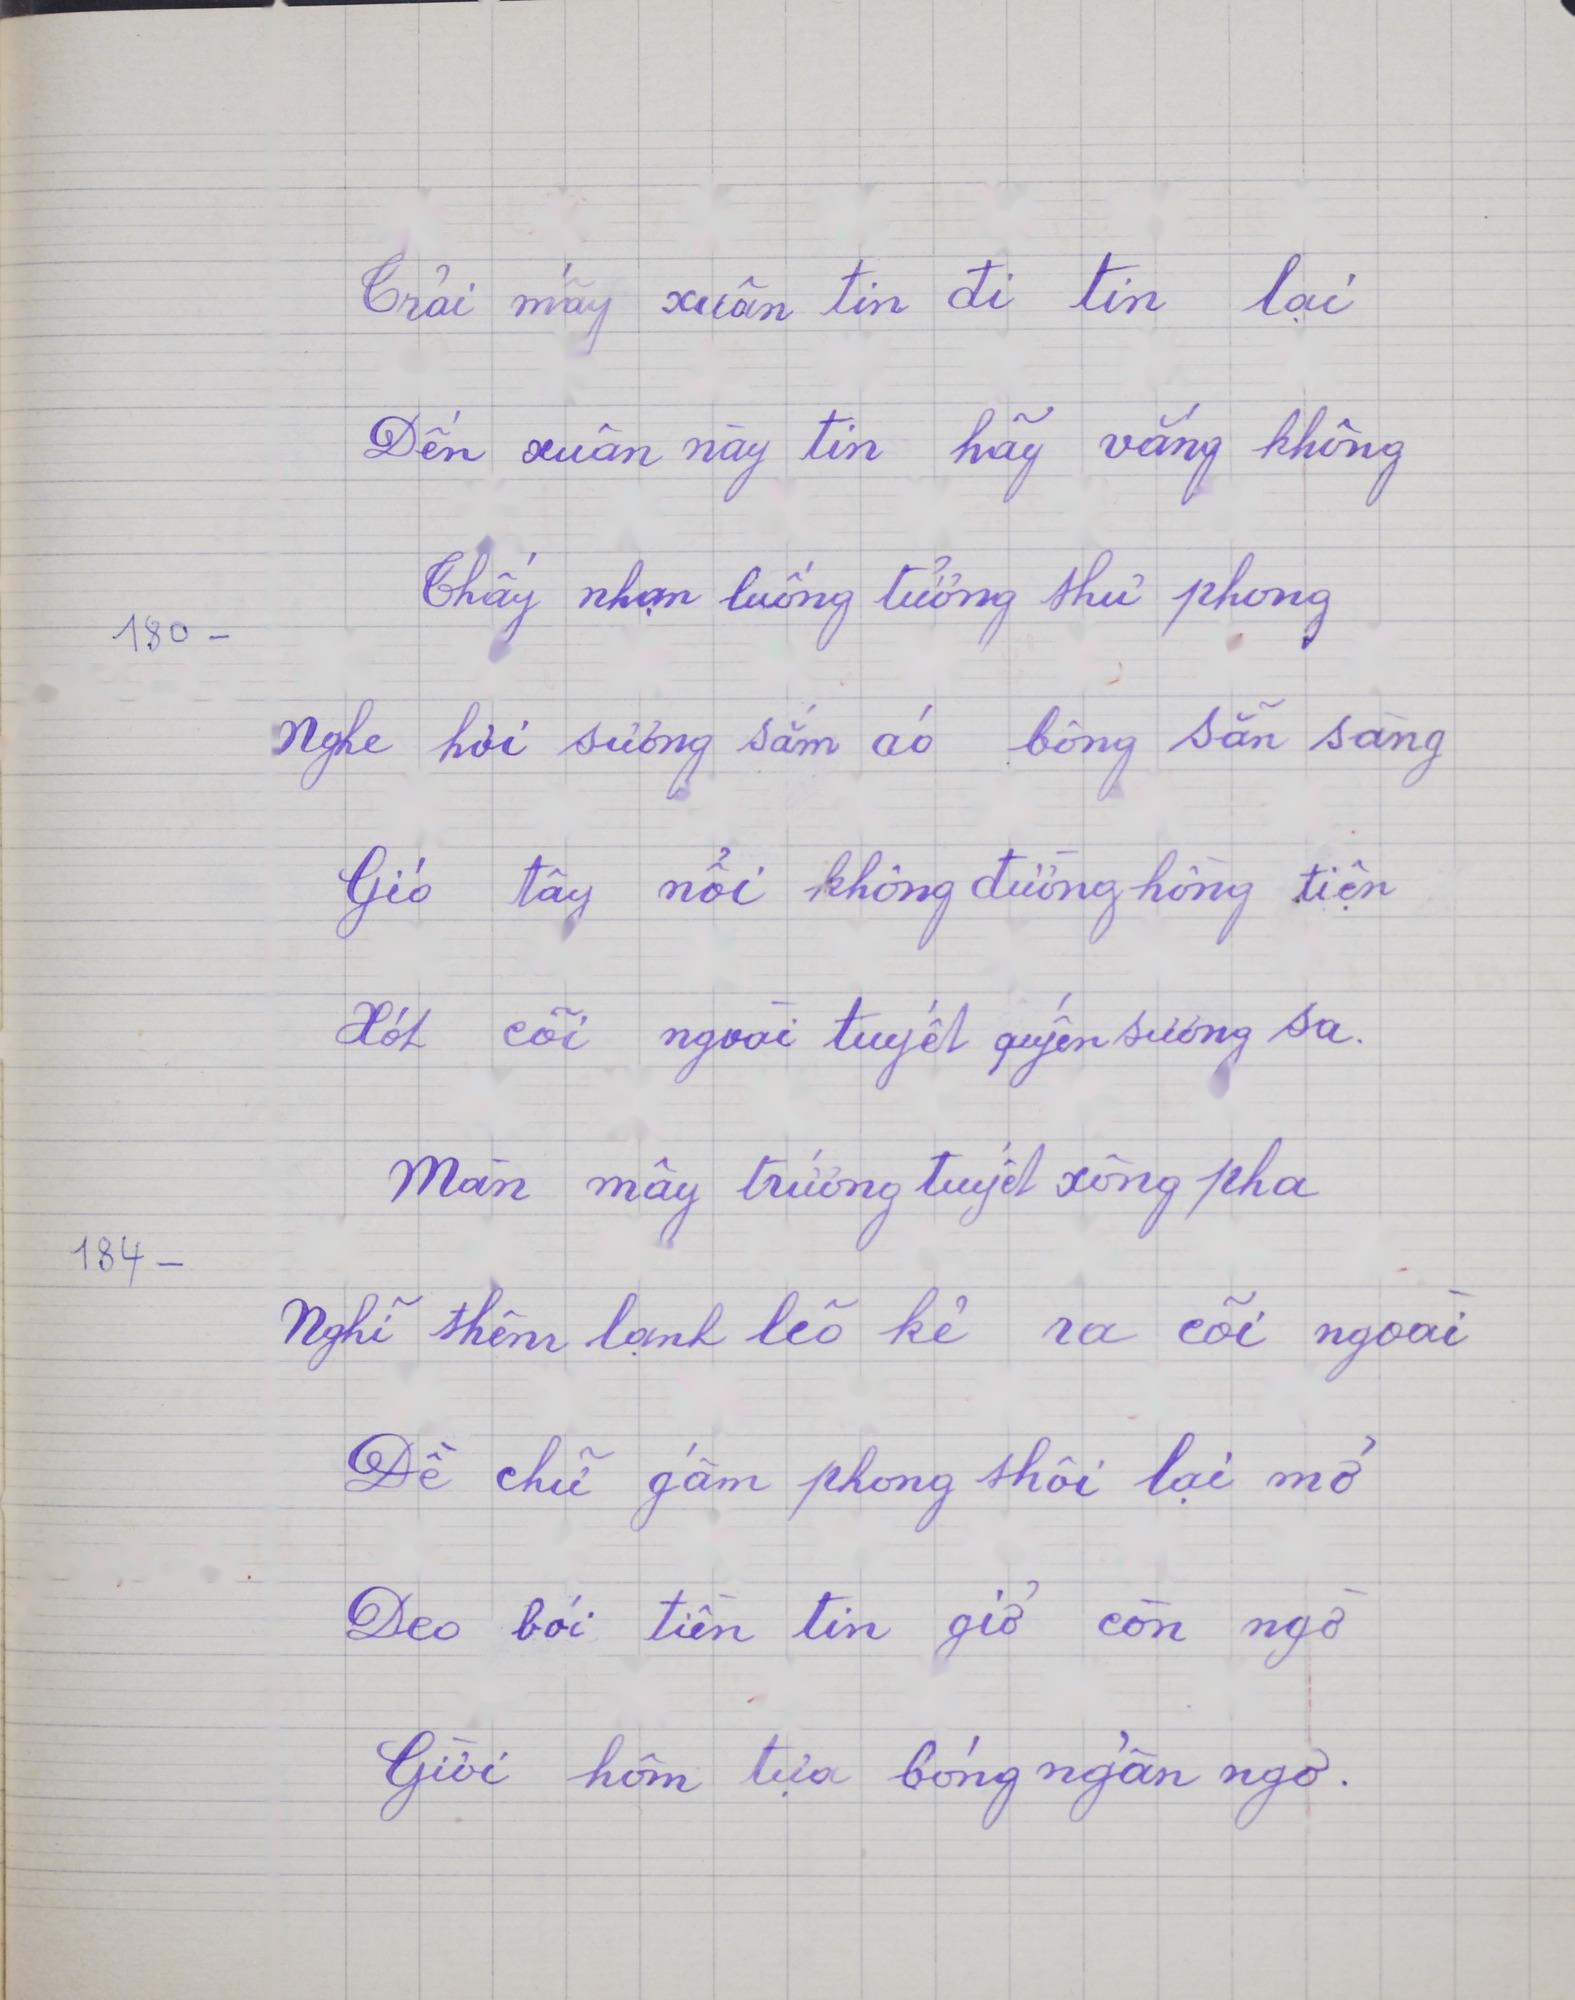 Trải mấy xuân tin đi tin lại
Đến xuân này tin hãy vắng không
Thấy nhạn luống tưởng thư phong
180 -
Nghe hơi sương sắm áo bông sẵn sàng
Gió tây nổi không đường hồng tiện
Xót cõi ngoài tuyết quyến sương sa.
Màn mây trướng tuyết xông pha
184 -
Nghĩ thêm lạnh lẽo kẻ ra cõi ngoài
Đề chữ gấm phong thôi lại mở
Deo bói tiền tin giở còn ngờ
Giời hôm tựa bóng ngẩn ngơ.